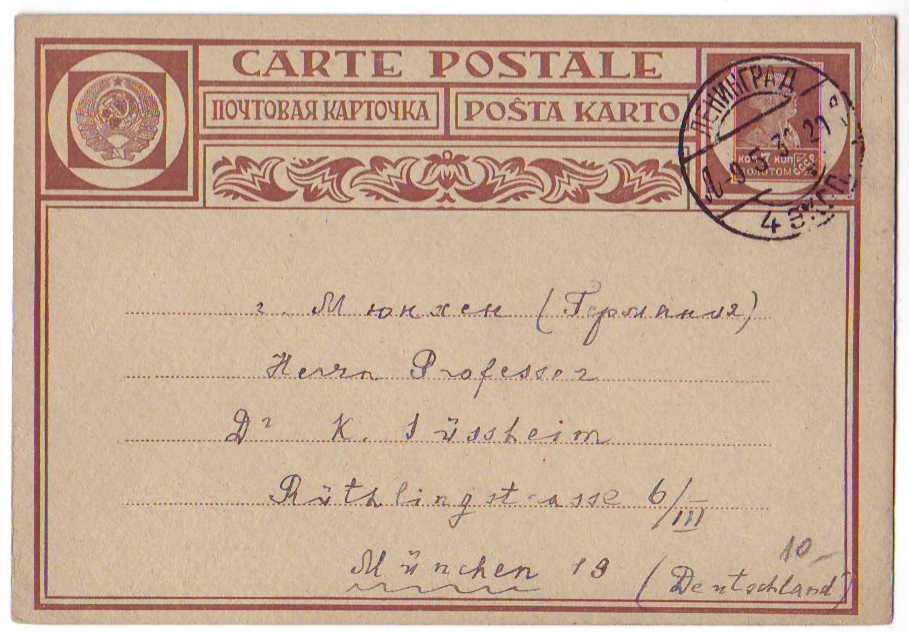 CARTE POSTALE
ПОЧТОВАЯ КАРТОЧКА
POŜTA KARTO
ЛЕНИНГРАД
КОП
ЗОЛОТОМ
г. Мюнхен (Германия)
Herrn Professor
Dr K. Süssheim
Rüthlingstrasse 6/III
München 19 (Deutschland)
10.-